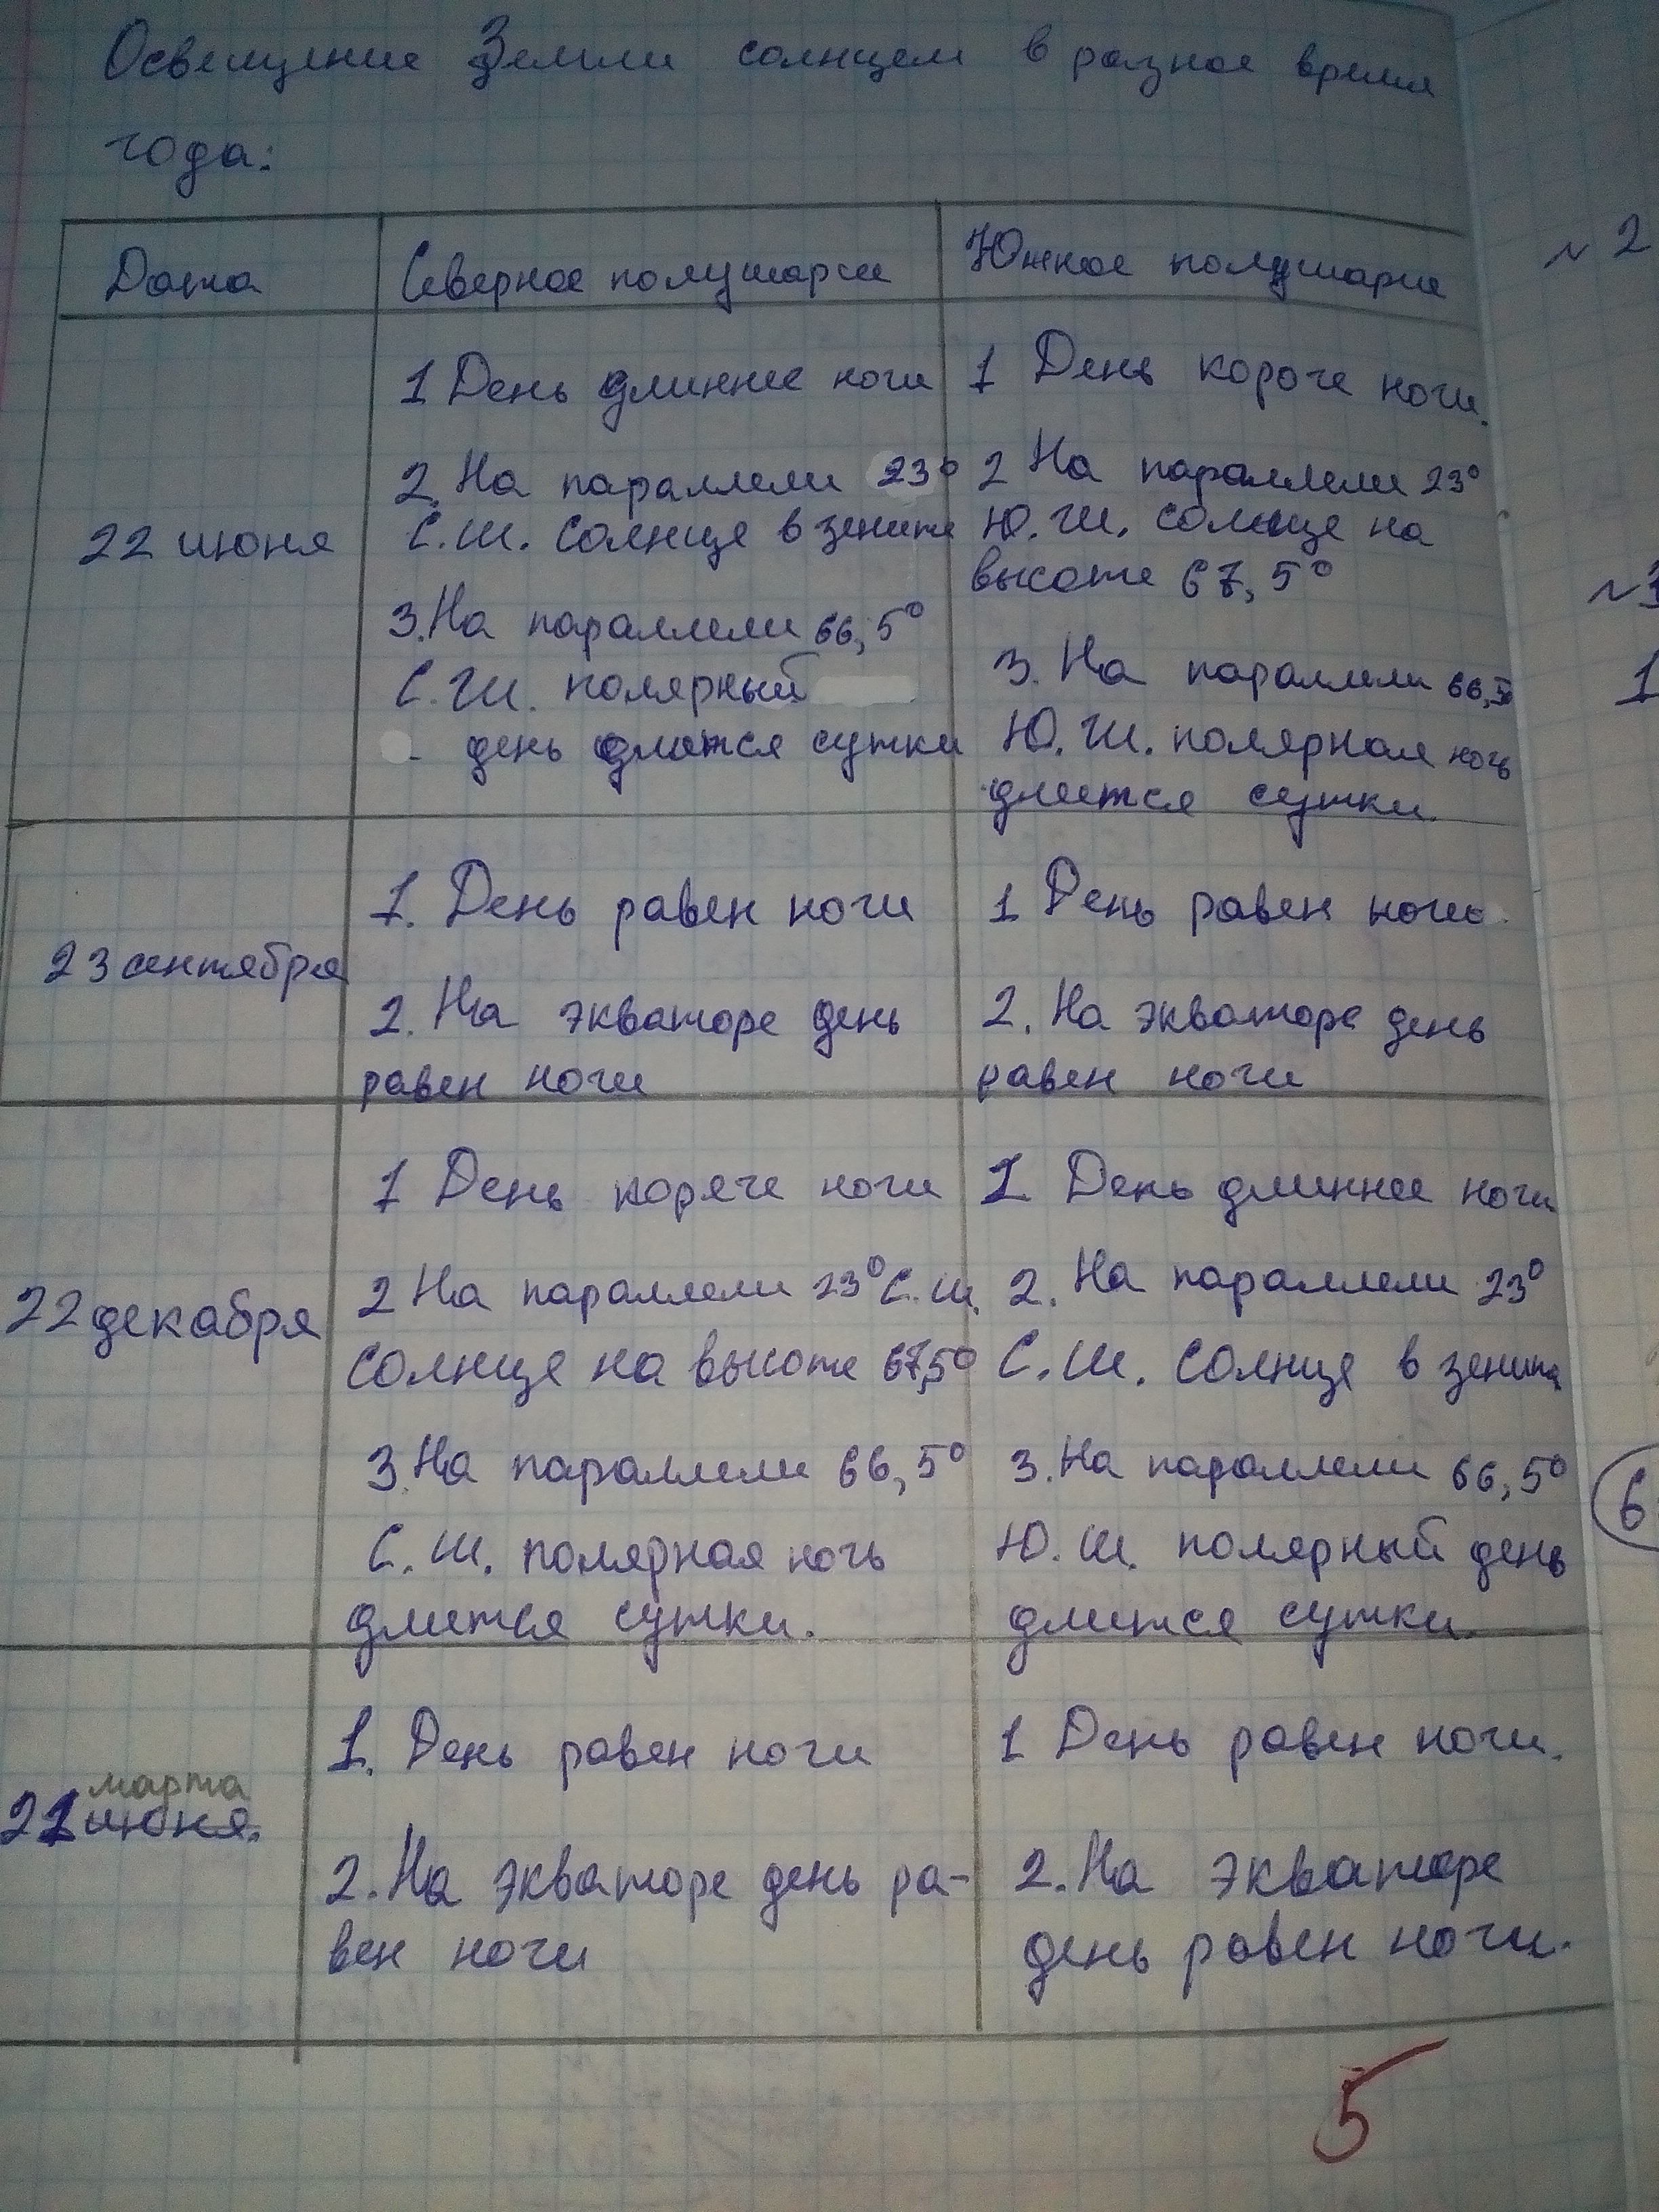 Освещение Земли солнцем в разное время
года:
Дата
Северное полушарие
Южное полушарие
22 июня
1 День длиннее ночи
2. На параллели 23°
С.Ш. Солнце в зените
3. На параллели 66,5°
С.Ш. полярный
день длится сутки
1 День короче ночи.
2 На параллели 23°
Ю.Ш. солнце на
высоте 67,5°
3. На параллели 66,5
Ю.Ш. полярная ночь
длится сутки.
23 сентября
1. День равен ночи
2. На экваторе день
равен ночи
1 День равен ночи.
2. На экваторе день
равен ночи
22 декабря
1 День короче ночи
2 На параллели 23° С.Ш.
солнце на высоте 67,5°
3. На параллели 66,5°
С.Ш. полярная ночь
длится сутки.
1 День длиннее ночи
2. На параллели 23°
С.Ш. солнце в зените
3. На параллели 66,5°
Ю.Ш. полярный день
длится сутки.
марта
21 июня.
1. День равен ночи
2. На экваторе день ра-
вен ночи
1 День равен ночи.
2. На экваторе
день равен ночи.
5
~ 2
1
6